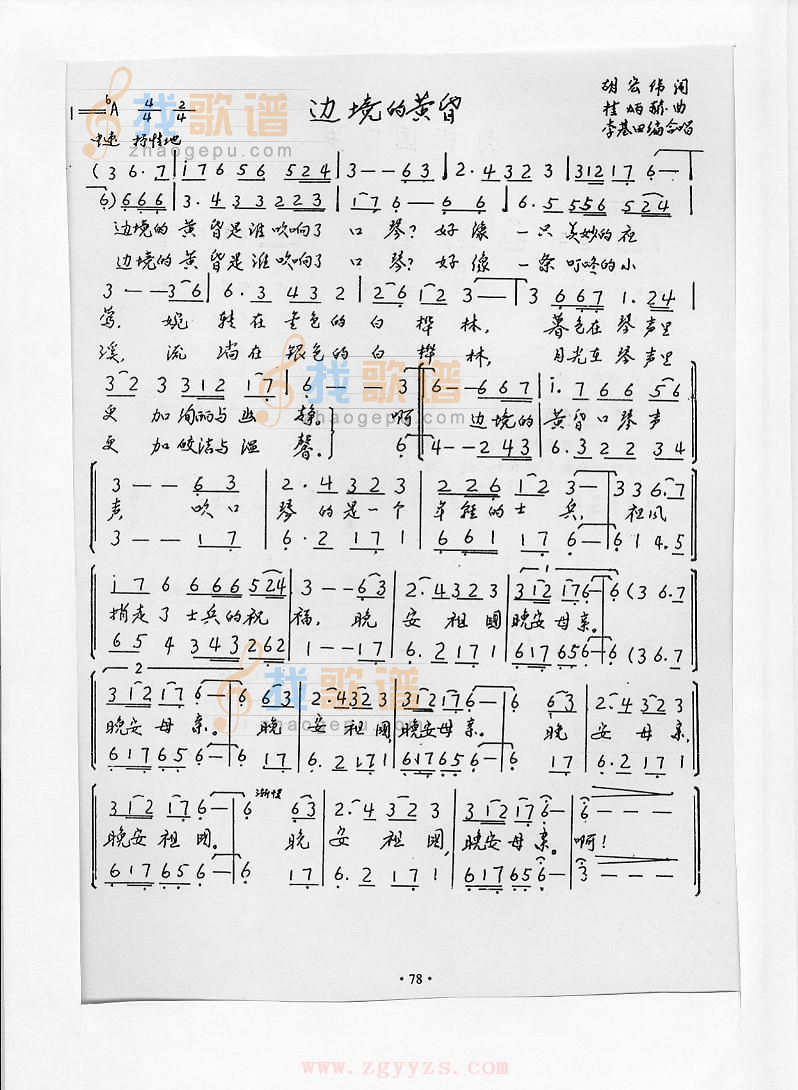 边境的黄昏
胡宏伟词
1=♭A 4/4 2/4
桂炳新曲
中速 抒情地
李基田编合唱
找歌谱
zhaogepu.com
(3 6.7 | i 7 6 5 6 5 2 4 | 3 - - 6 3 | 2.4 3 2 3 | 3 1 2 1 7 6 - |
6) 6 6 6 | 3.4 3 3 2 2 3 | 1 7 6 - 6 6 | 6.5 5 5 6 5 2 4 |
边境的黄昏是谁吹响了口琴?好像一只美妙的夜
边境的黄昏是谁吹响了口琴?好像一条叮咚的小
3 - - 3 6 | 6.3 4 3 2 | 2 6 1 2 3 - | 3 6 6 7 1.2 4 |
莺,婉转在金色的白桦林,暮色在琴声里
溪,流淌在银色的白桦林,月光在琴声里
3 2 3 3 1 2 1 7 | 6 - - 3 | 6 - - 6 6 7 | i.7 6 6 5 6
更加绚丽与幽静。啊 边境的黄昏口琴声
更加皎洁与温馨。
6 | 4 - - 2 4 3 | 6.3 2 2 3 4
3 - - 6 3 | 2.4 3 2 3 | 2 2 6 1 2 3 - | 3 3 6.7
声 吹口琴的是一个年轻的士兵,祖风
3 - - 1 7 | 6.2 1 7 1 | 6 6 1 1 7 6 - | 6 1 4.5
i 7 6 6 6 6 5 2 4 | 3 - - 6 3 | 2.4 3 2 3 | 3 1 2 1 7 6 - | 6 (3 6.7
捎走了士兵的祝福,晚安祖国晚安母亲。
6 5 4 3 4 3 2 6 2 | 1 - - 1 7 | 6.2 1 7 1 | 6 1 7 6 5 6 - | 6 (3 6.7
3 1 2 1 7 6 - | 6 6 3 | 2.4 3 2 3 | 3 1 2 1 7 6 - | 6 6 3 | 2.4 3 2 3
晚安母亲。晚安祖国,晚安母亲。晚安母亲,
6 1 7 6 5 6 - | 6 1 7 | 6.2 1 7 1 | 6 1 7 6 5 6 - | 6 1 7 | 6.2 1 7 1
渐慢
3 1 2 1 7 6 - | 6 6 3 | 2.4 3 2 3 | 3 1 2 1 7 6 - | 6 - -
晚安祖国。晚安祖国,晚安母亲。啊!
6 1 7 6 5 6 - | 6 1 7 | 6.2 1 7 1 | 6 1 7 6 5 6 - | 3 - -
·78·
www.zgyyzs.com